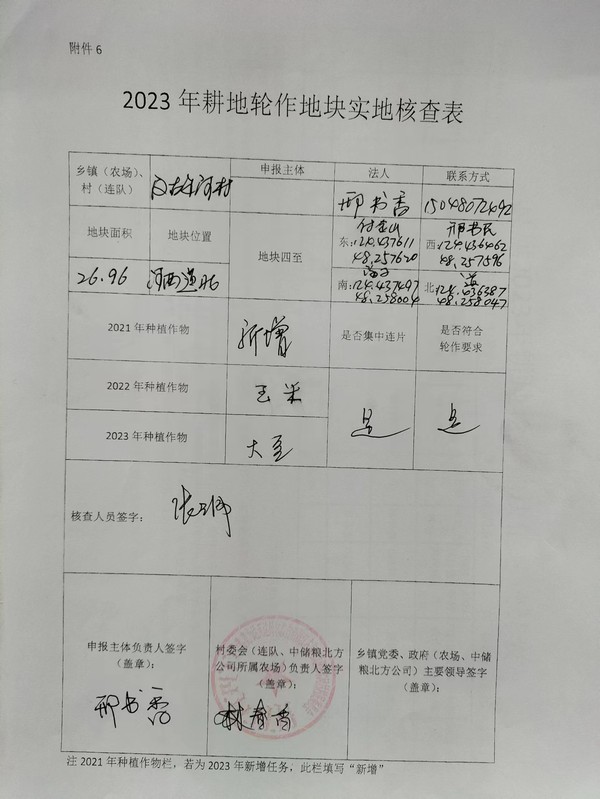 附件 6
2023 年耕地轮作地块实地核查表
乡镇（农场）、
村（连队）
河村
申报主体
法人
联系方式
邢书香
15048072492
地块面积
地块位置
地块四至
付金山
东:124.437611
48.257620
邢书民
西:124.436462
48.257596
26.96
河西道北
南:124.437497
48.258004
北:124.436387
48.258047
2021 年种植作物
新增
是否集中连片
是否符合
轮作要求
2022 年种植作物
玉米
是
是
2023 年种植作物
大豆
核查人员签字：
申报主体负责人签字
（盖章）：
邢书香
村委会（连队、中储粮北方
公司所属农场）负责人签字
（盖章）：
乡镇党委、政府（农场、中储
粮北方公司）主要领导签字
（盖章）：
注 2021 年种植作物栏，若为 2023 年新增任务，此栏填写“新增”